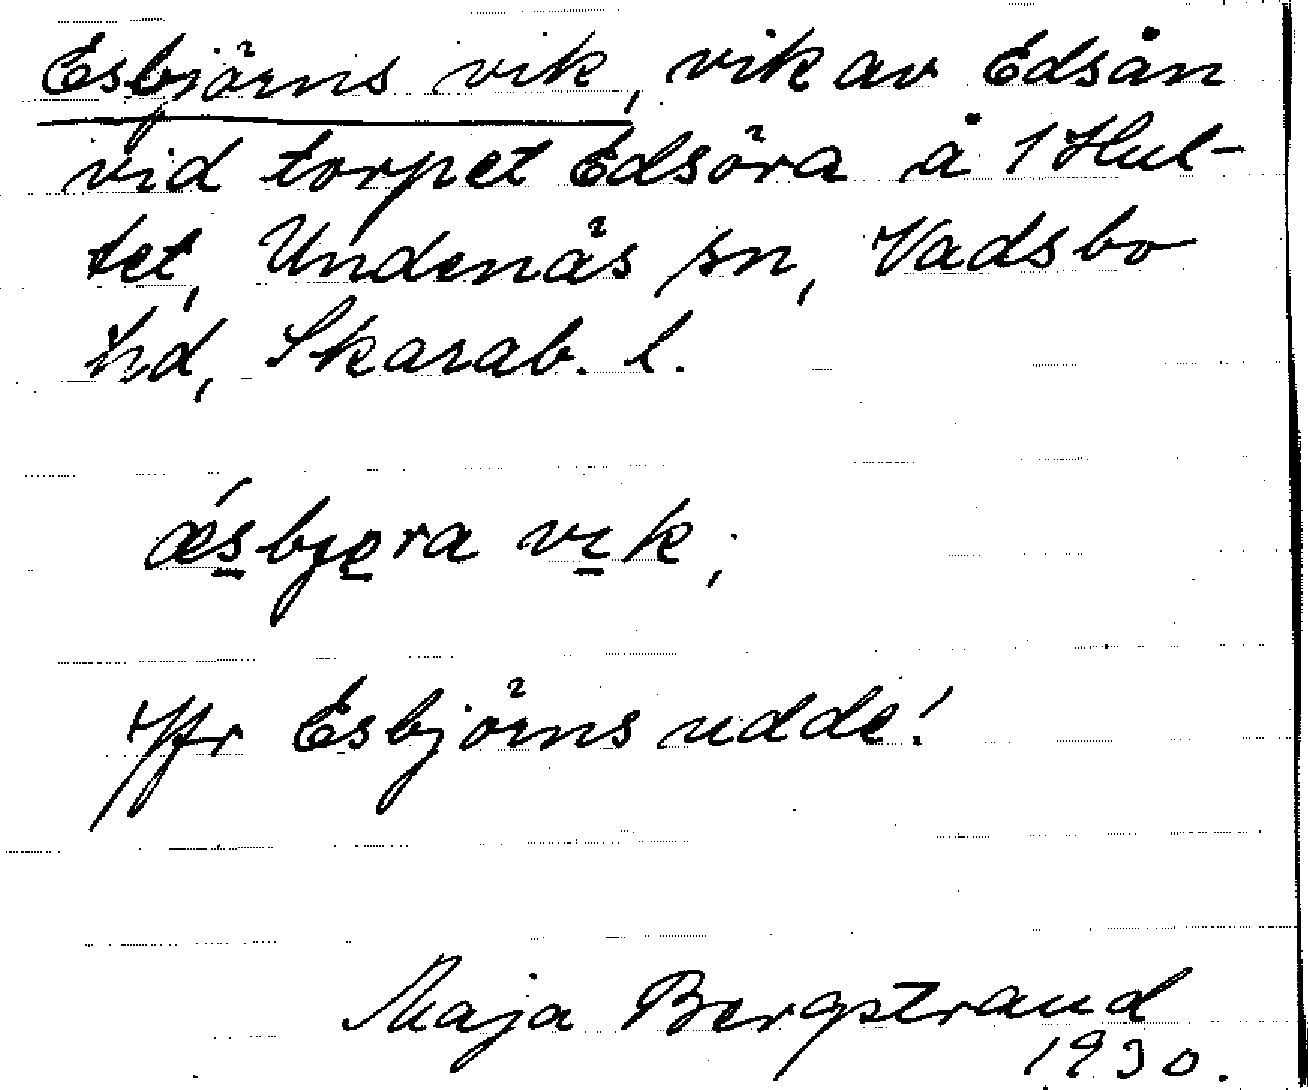 Esbjörns vik, vik av Edsån
vid torpet Edsöra å 1 Hul-
tet, Undenäs sn, Vadsbo
hd, Skarab. l.
ǽsbjøra vɩk,
Jfr Esbjörns udde!
Maja Bergstrand
1930.